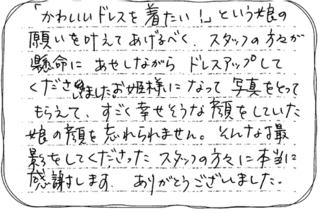 「かわいいドレスを着たい！」という娘の
願いを叶えてあげるべく、スタッフの方々が
懸命に あせしながら ドレスアップして
くださいました。お姫様になって 写真をとって
もらえて、すごく幸せそうな顔をしていた
娘の顔を忘れられません。そんな
影をしてくださった スタッフの方々に本当に
感謝します。ありがとうございました。